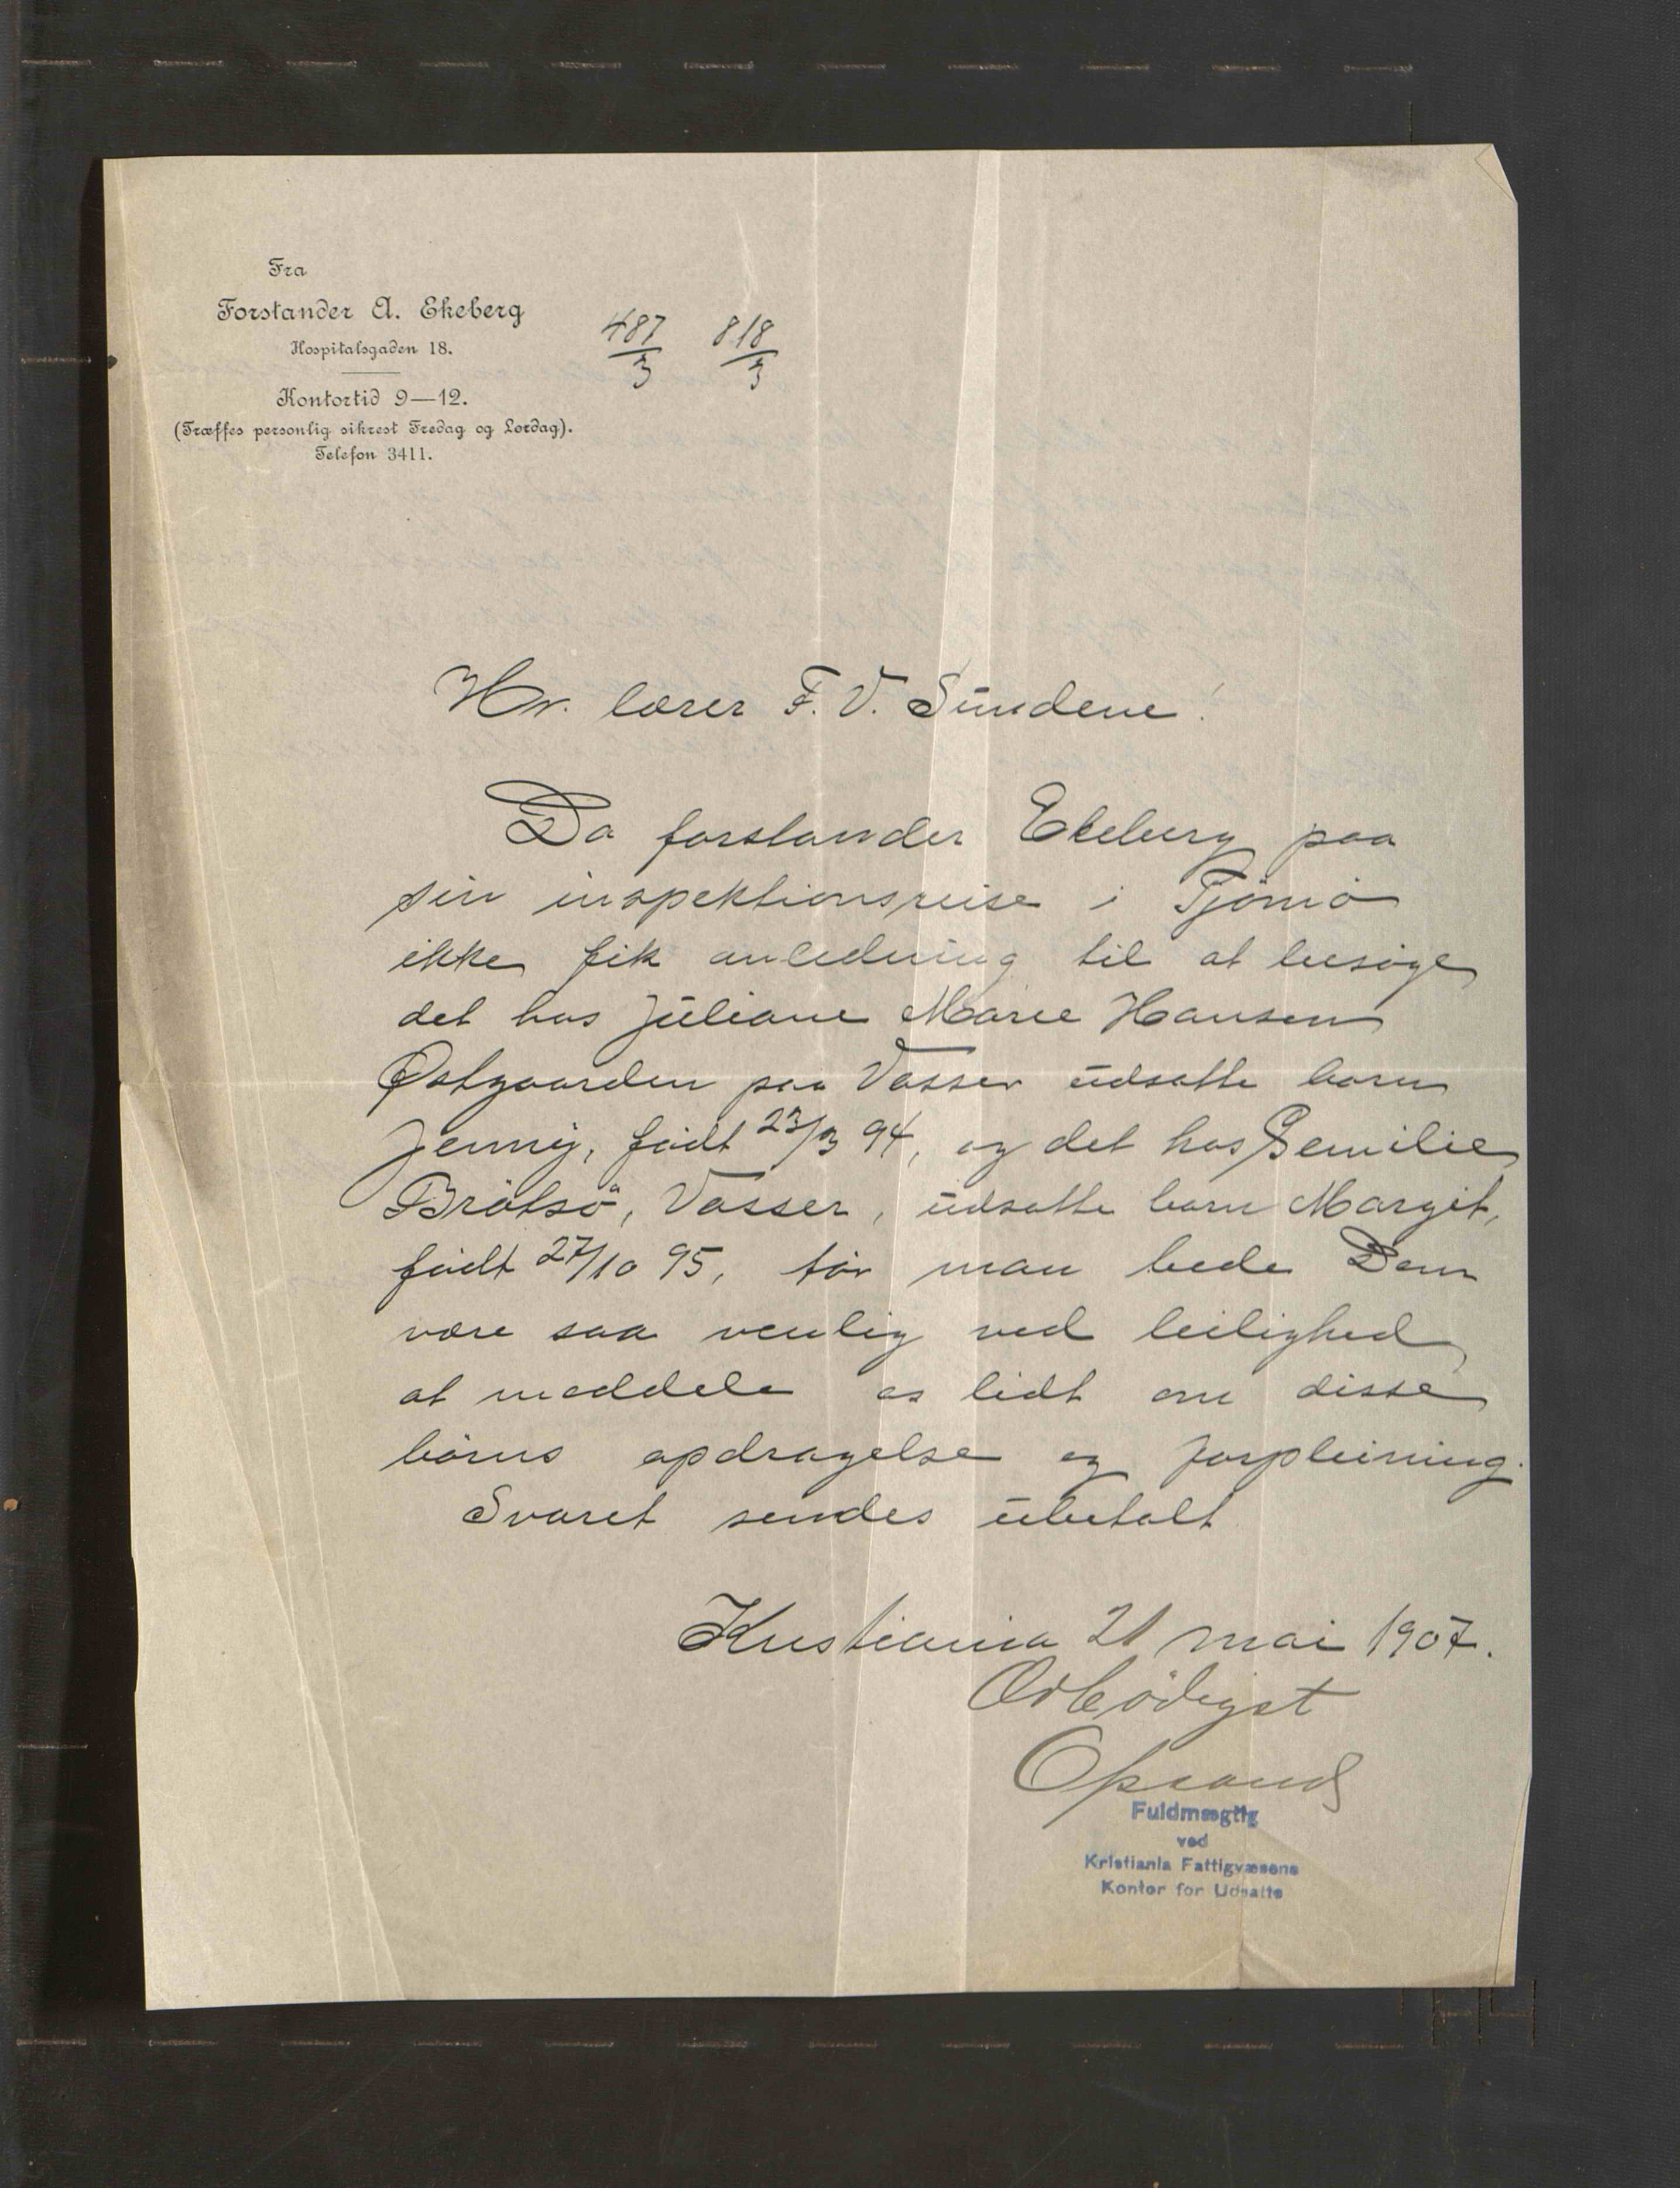 Fra
Forstander A. Ekeberg
Hospitalsgaden 18.
Kontortid 9—12.
(Træffes personlig sikrest Fredag og Lørdag).
Telefon 3411.
487/3 818/3
Hr. lærer F. V. Sundene!
Da forstander Ekeberg paa
sin inspektionsreise i Tjømø
ikke fik anledning til at besøge
det hos Juliane Marie Hansen
Østgaarden paa Vasser udsatte barn
Jenny, født 23/3 94, og det hos Bemilie
Brøtsø, Vasser, udsatte barn Margit,
født 27/10 95, tør man bede Dem
være saa venlig ved leilighed
at meddele os lidt om disse
børns opdragelse og forpleining.
Svaret sendes ubetalt
Kristiania 21 mai 1907.
Ærbødigst
Fuldmægtig
ved
Kristiania Fattigvæsens
Kontor for Udsatte